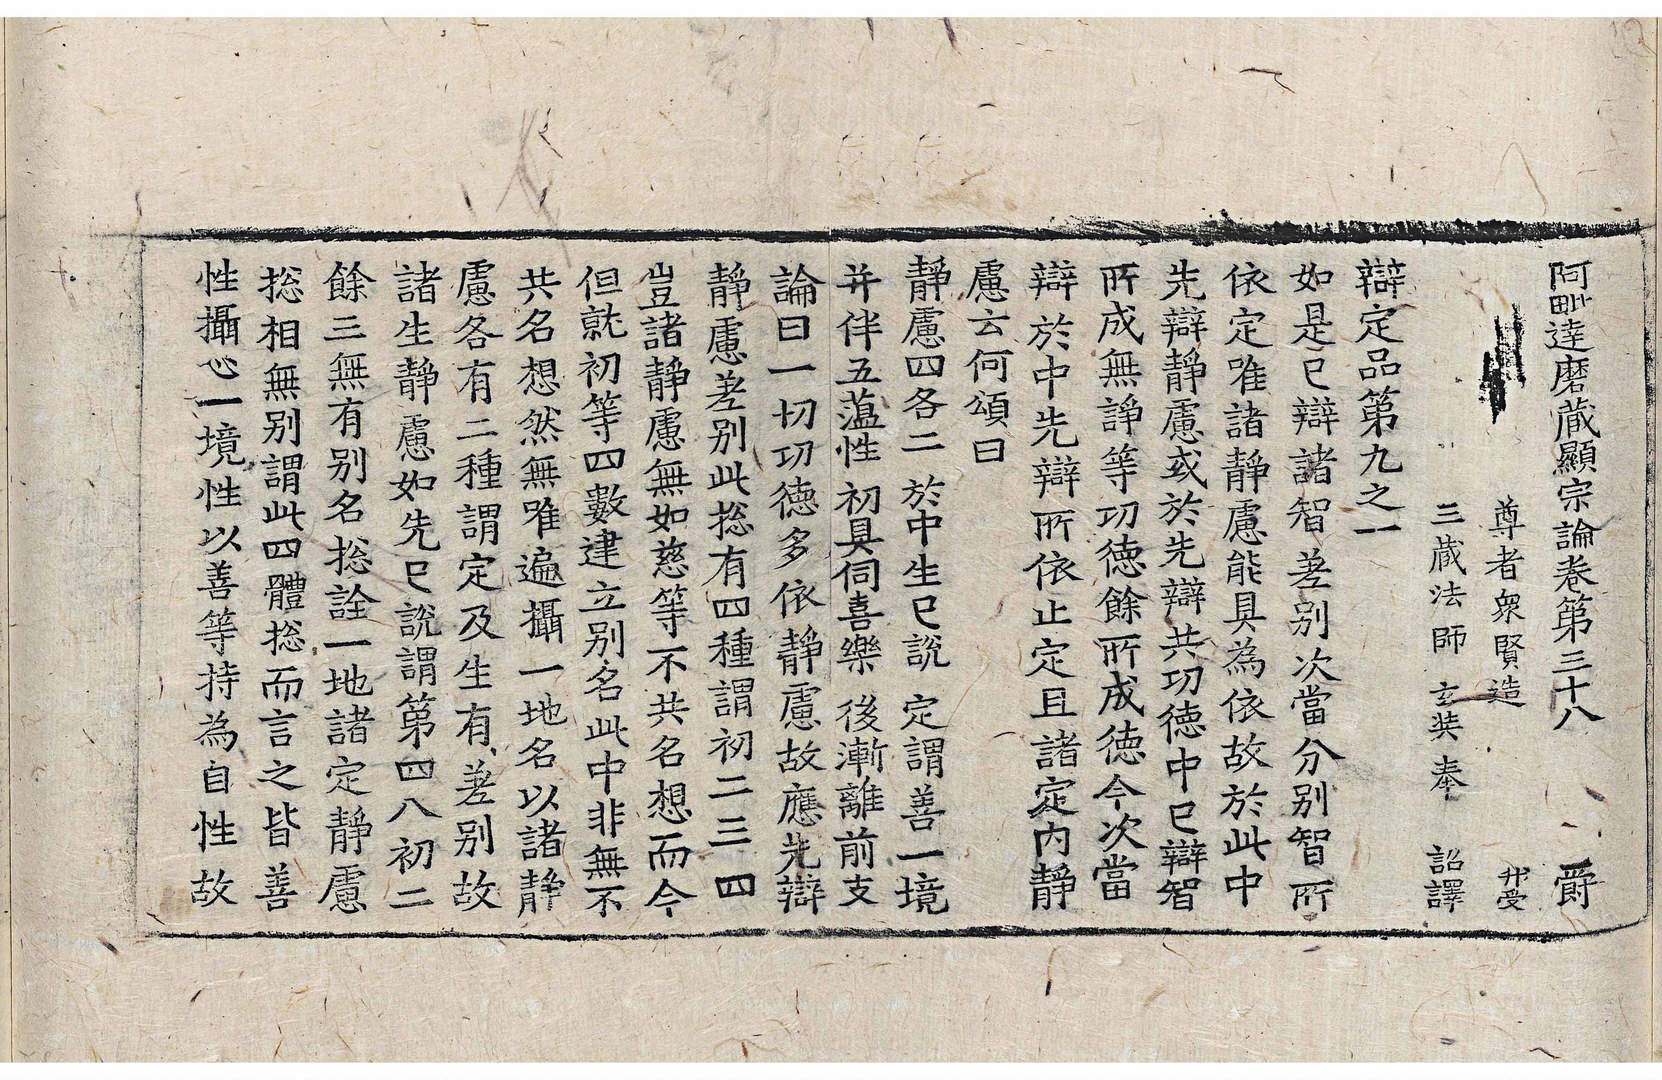 阿毗達磨藏顯宗論卷第三十八 爵
尊者衆賢造
三藏法師 玄奘奉 詔譯
辯定品第九之一
如是已辯諸智差别次當分别智所
依定唯諸靜慮能具為依故於此中
先辯靜慮或於先辯共功德中已辯智
所成無諍等功德餘所成德今次當
辯於中先辯所依止定且諸定內靜
慮云何頌曰
靜慮四各二 於中生已說 定謂善一境
并伴五蘊性 初具伺喜樂 後漸離前支
論曰一切功德多依靜慮故應先辯
靜慮差别此捴有四種謂初二三四
豈諸靜慮無如慈等不共名想而今
但就初等四數建立别名此中非無不
共名想然無唯遍攝一地名以諸靜
慮各有二種謂定及生有差别故
諸生靜慮如先已說謂第四八初二
餘三無有别名捴詮一地諸定靜慮
捴相無别謂此四體捴而言之皆善
性攝心一境性以善等持為自性故